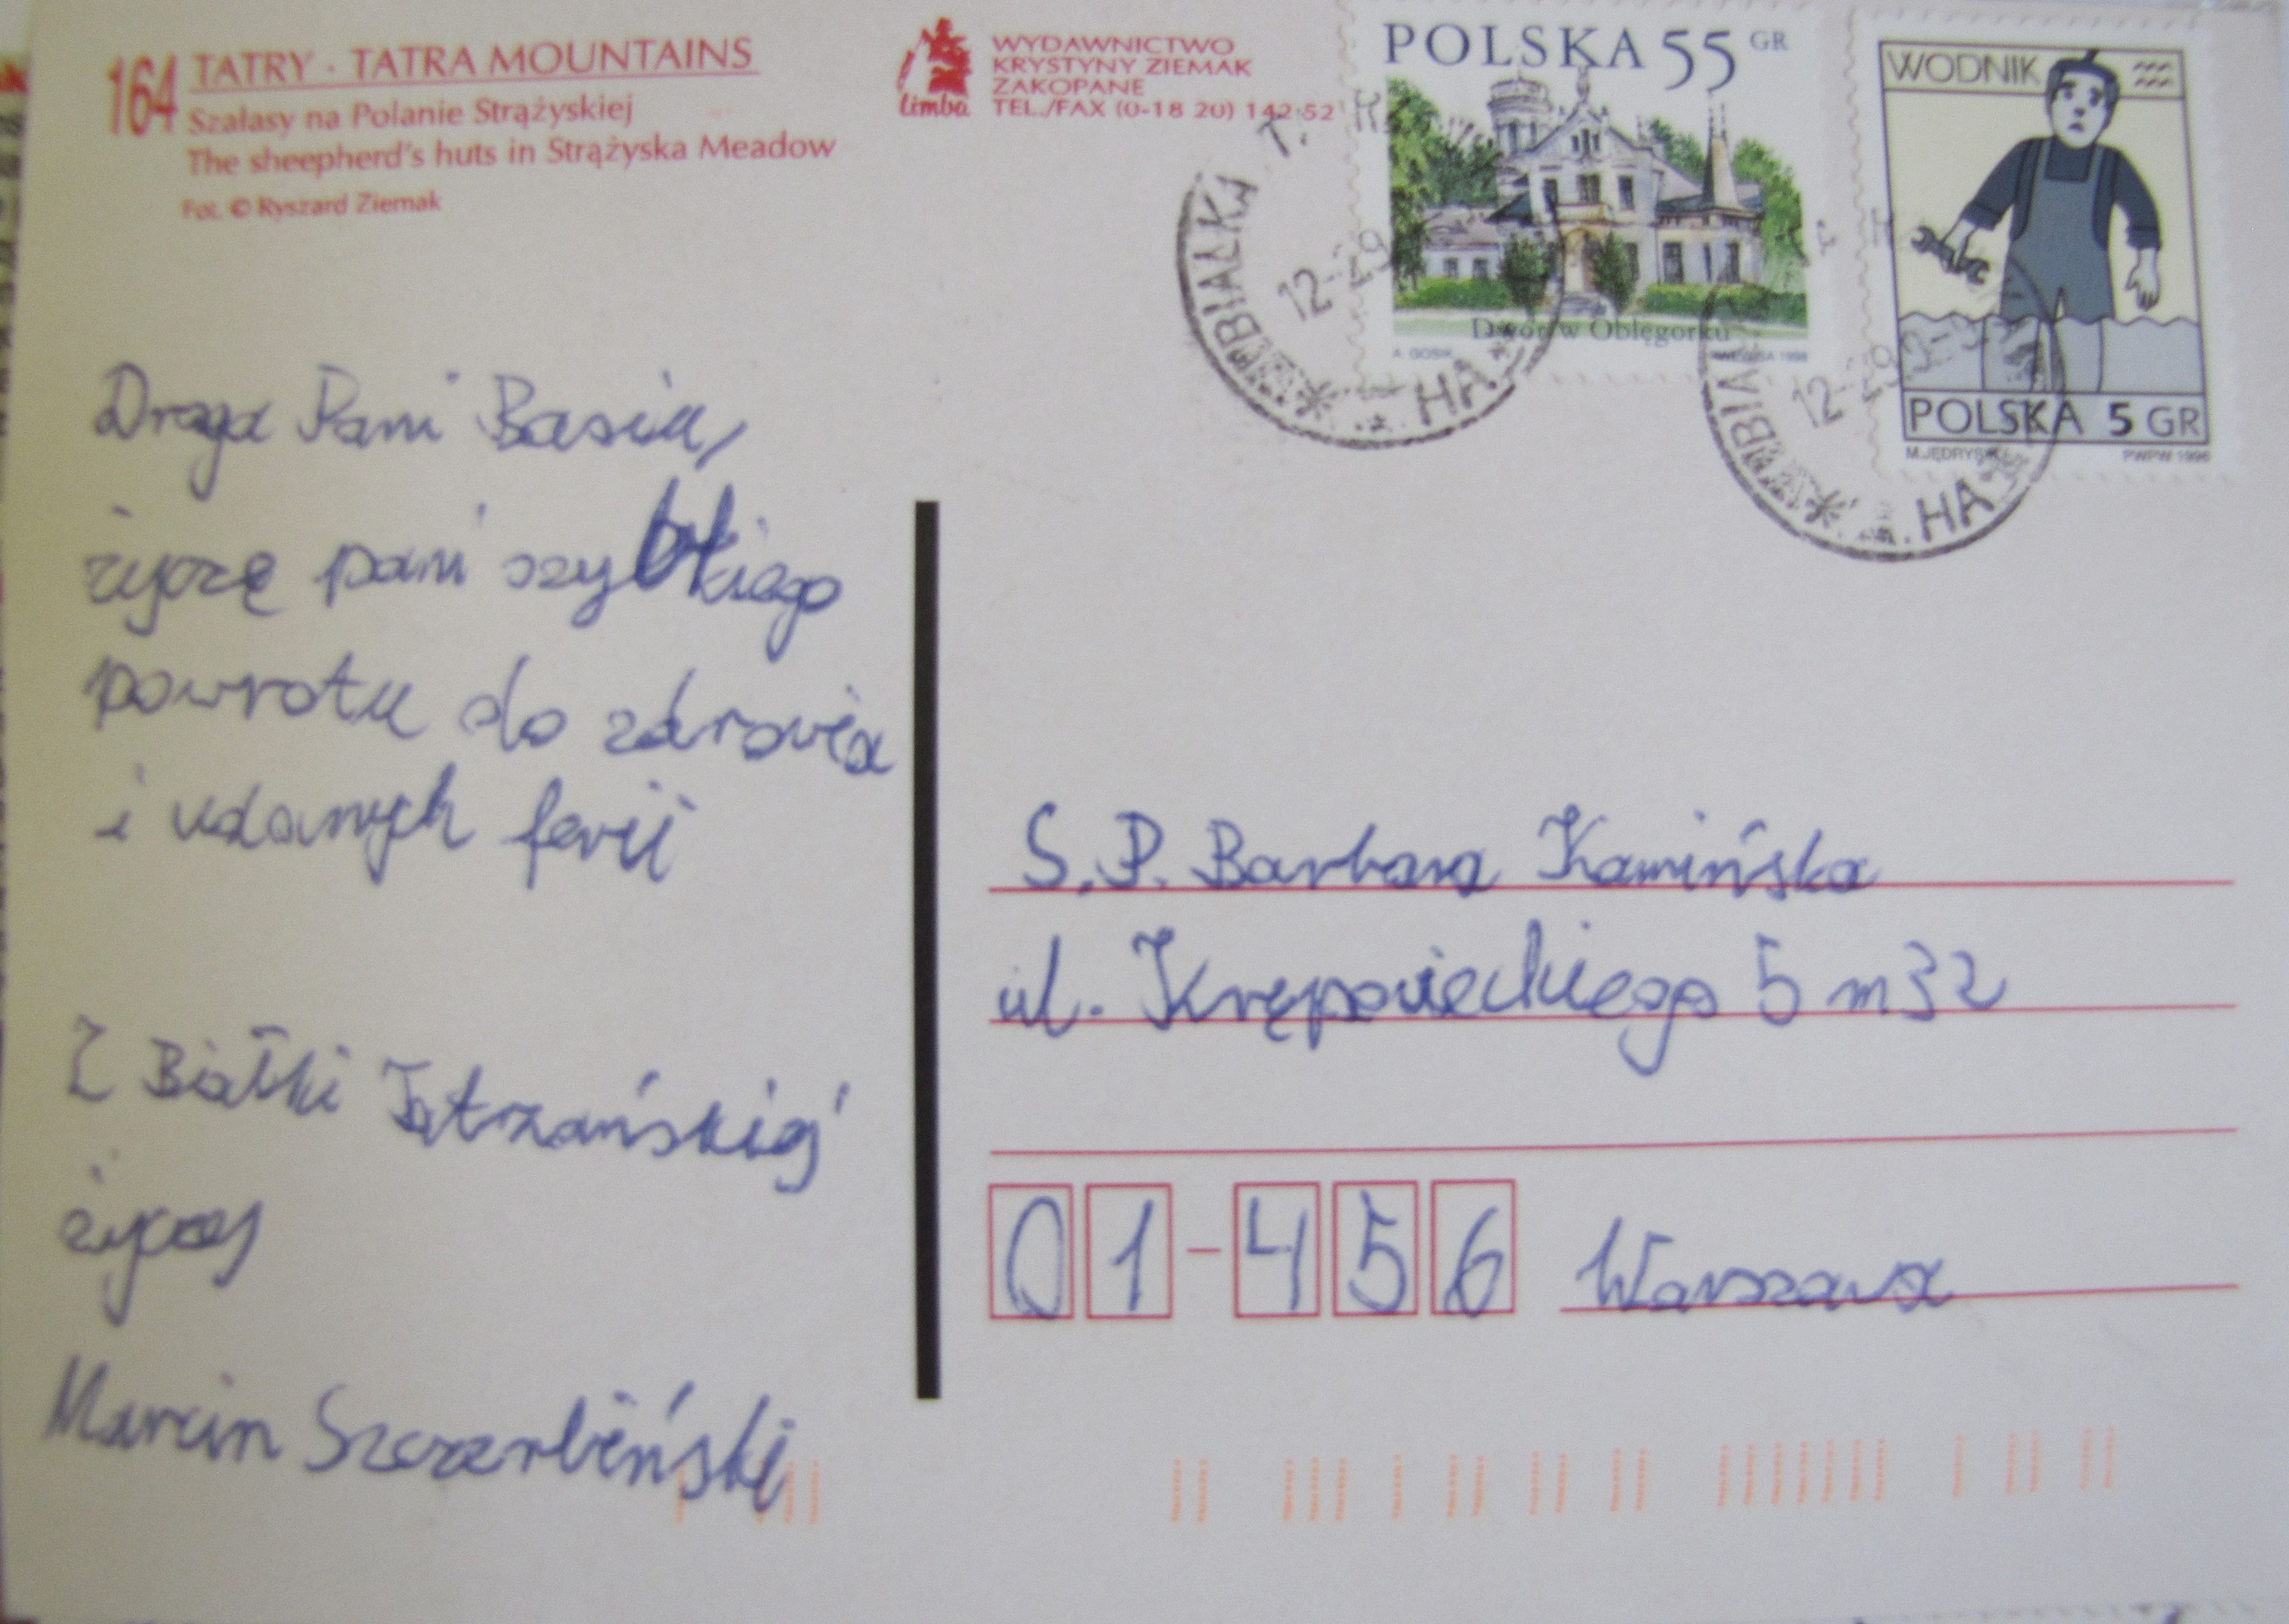 164 TATRY · TATRA MOUNTAINS
Szałasy na Polanie Strążyskiej
The sheepherd's huts in Strążyska Meadow
Fot. © Ryszard Ziemak
limba
WYDAWNICTWO
KRYSTYNY ZIEMAK
ZAKOPANE
TEL./FAX (0-18 20) 142 52
POLSKA 55 GR
Dwór w Oblęgorku
WODNIK
POLSKA 5 GR
PWPW 1996
Droga Pani Basiu,
życzę pani szybkiego
powrotu do zdrowia
i udanych ferii
Z Białki Tatrzańskiej
życzy
Marcin Szczerbiński
S.P. Barbara Kamińska
ul. Krępowieckiego 5 m 32
01-456 Warszawa